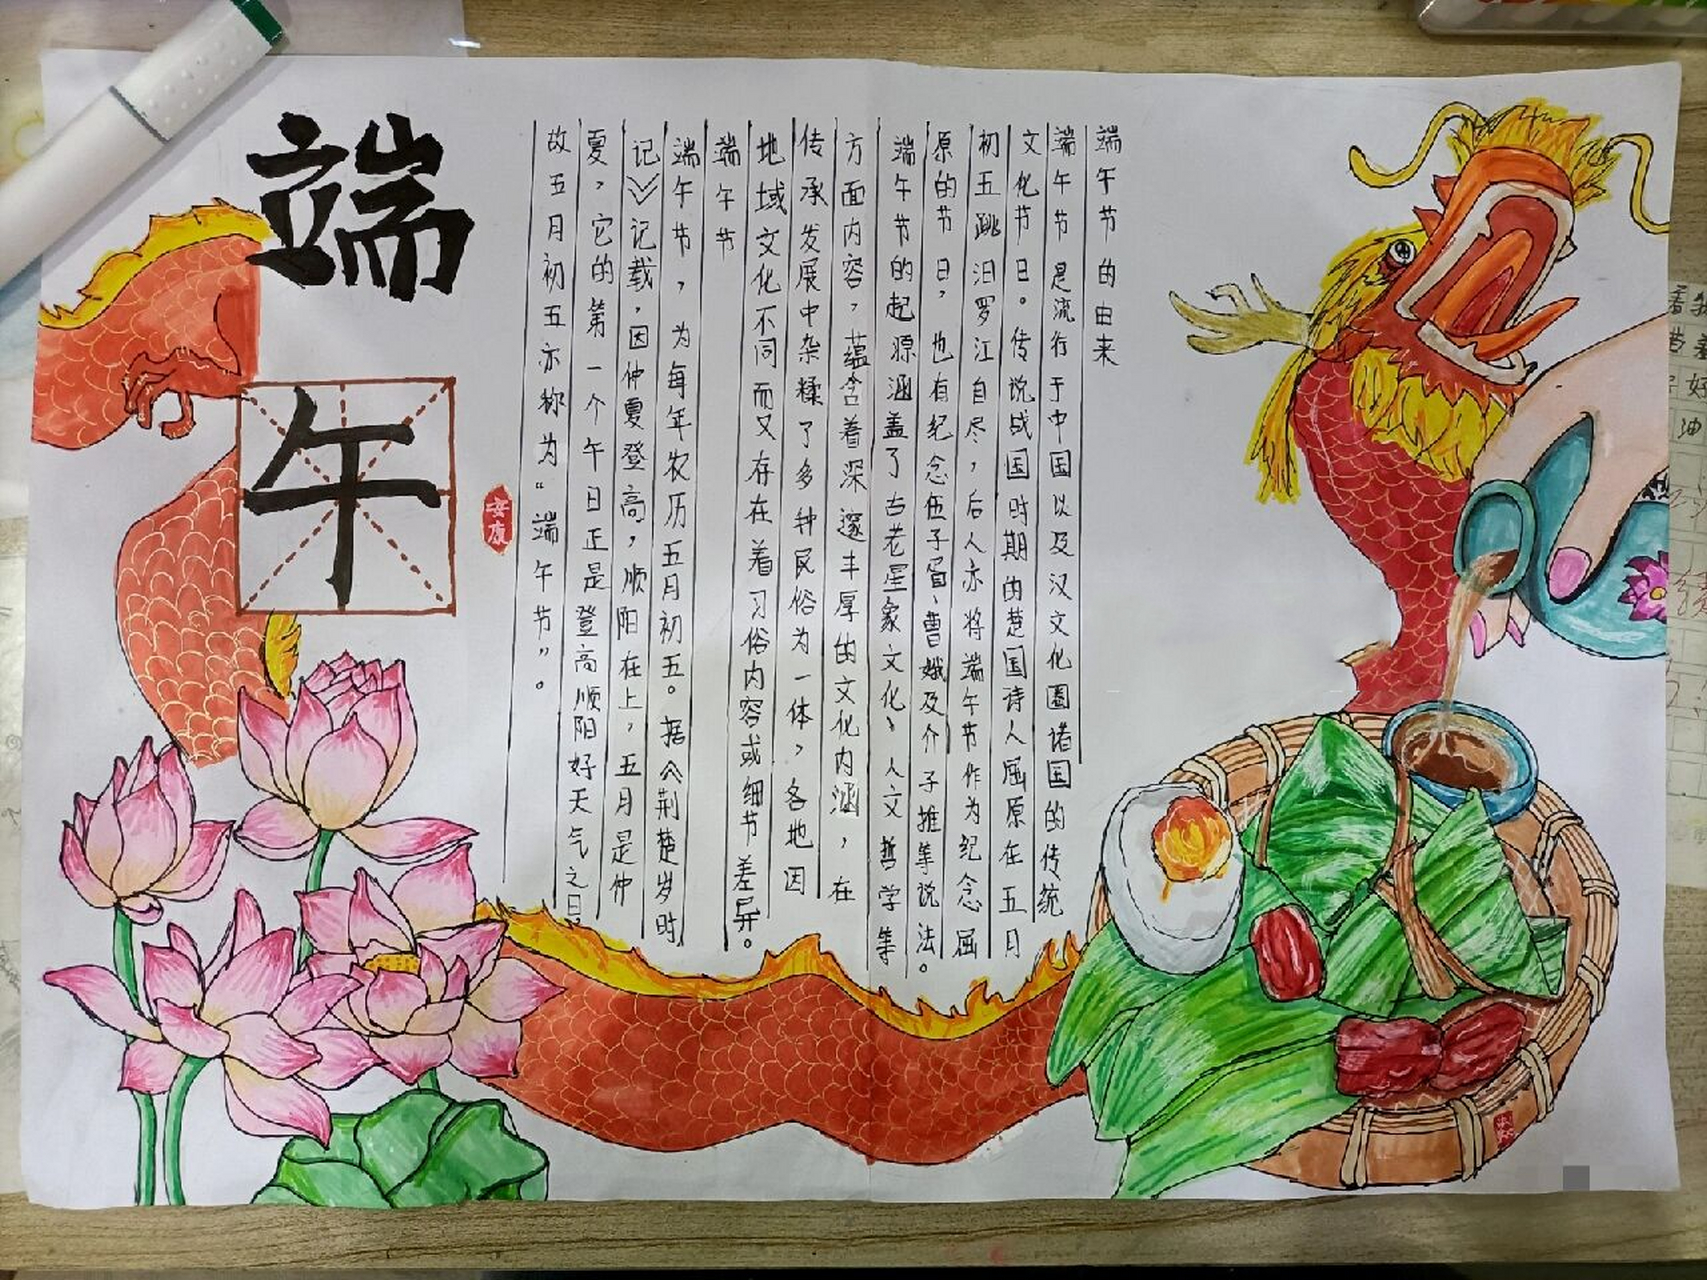 端
午
安康
端午节的由来
端午节是流行于中国以及汉文化圈诸国的传统
文化节日。传说战国时期的楚国诗人屈原在五月
初五跳汨罗江自尽，后人亦将端午节作为纪念屈
原的节日，也有纪念伍子胥、曹娥及介子推等说法。
端午节的起源涵盖了古老星象文化、人文哲学等
方面内容，蕴含着深邃丰厚的文化内涵，在
传承发展中杂糅了多种民俗为一体，各地因
地域文化不同而又存在着习俗内容或细节差异。
端午节
端午节，为每年农历五月初五。据《荆楚岁时
记》记载，因仲夏登高，顺阳在上，五月是仲
夏，它的第一个午日正是登高顺阳好天气之日，
故五月初五亦称为“端午节”。